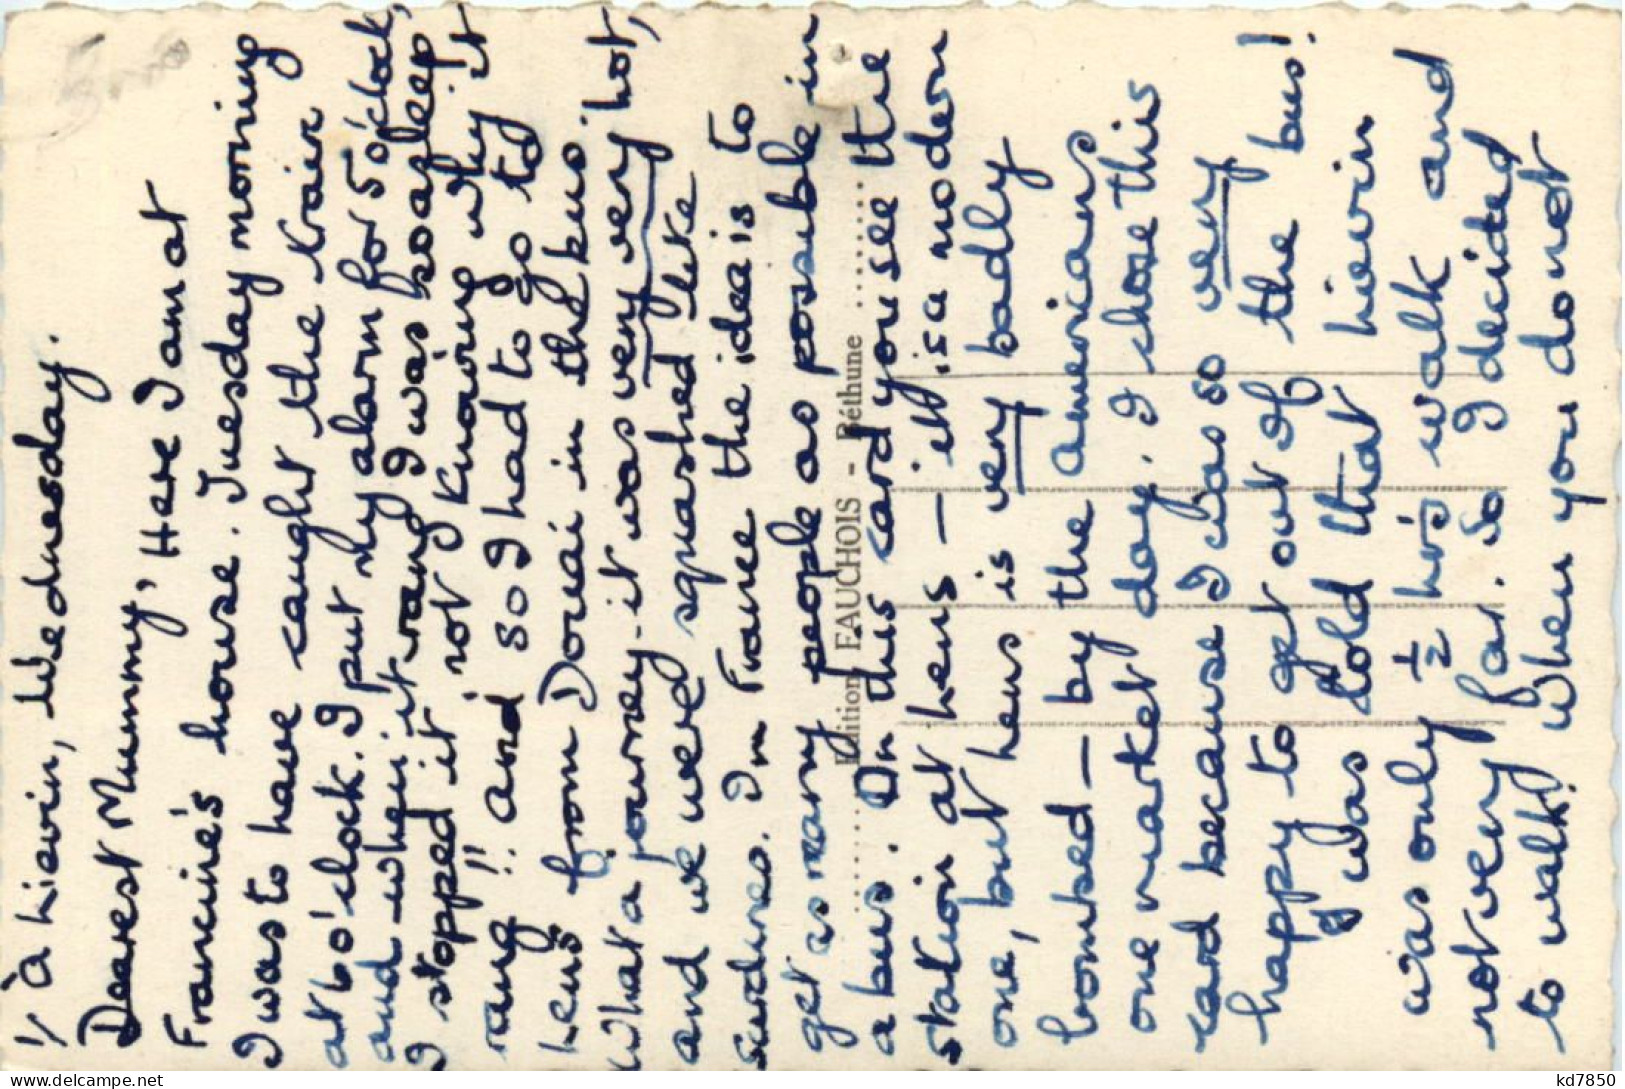 1/ à Liévin, Wednesday.
Dearest Mummy, Here I am at
Francine's house. Tuesday morning
I was to have caught the train
at 6 o'clock. I put my alarm for 5 o'clock,
and when it rang I was so asleep
I stopped it not knowing why it
rang!! and so I had to go to
Lens from Douai in the bus.
What a journey - it was very very hot,
and we were squashed like
sardines. In France the idea is to
get as many people as possible in
a bus. On this card you see the
station at Lens - it is a modern
one, but Lens is very badly
bombed - by the americans
one market day. I chose this
card because I was so very
happy to get out of the bus!
I was told that Liévin
was only ½ hr's walk and
not very far. So I decided
to walk! When you do not
Edition FAUCHOIS - Béthune
kd7850